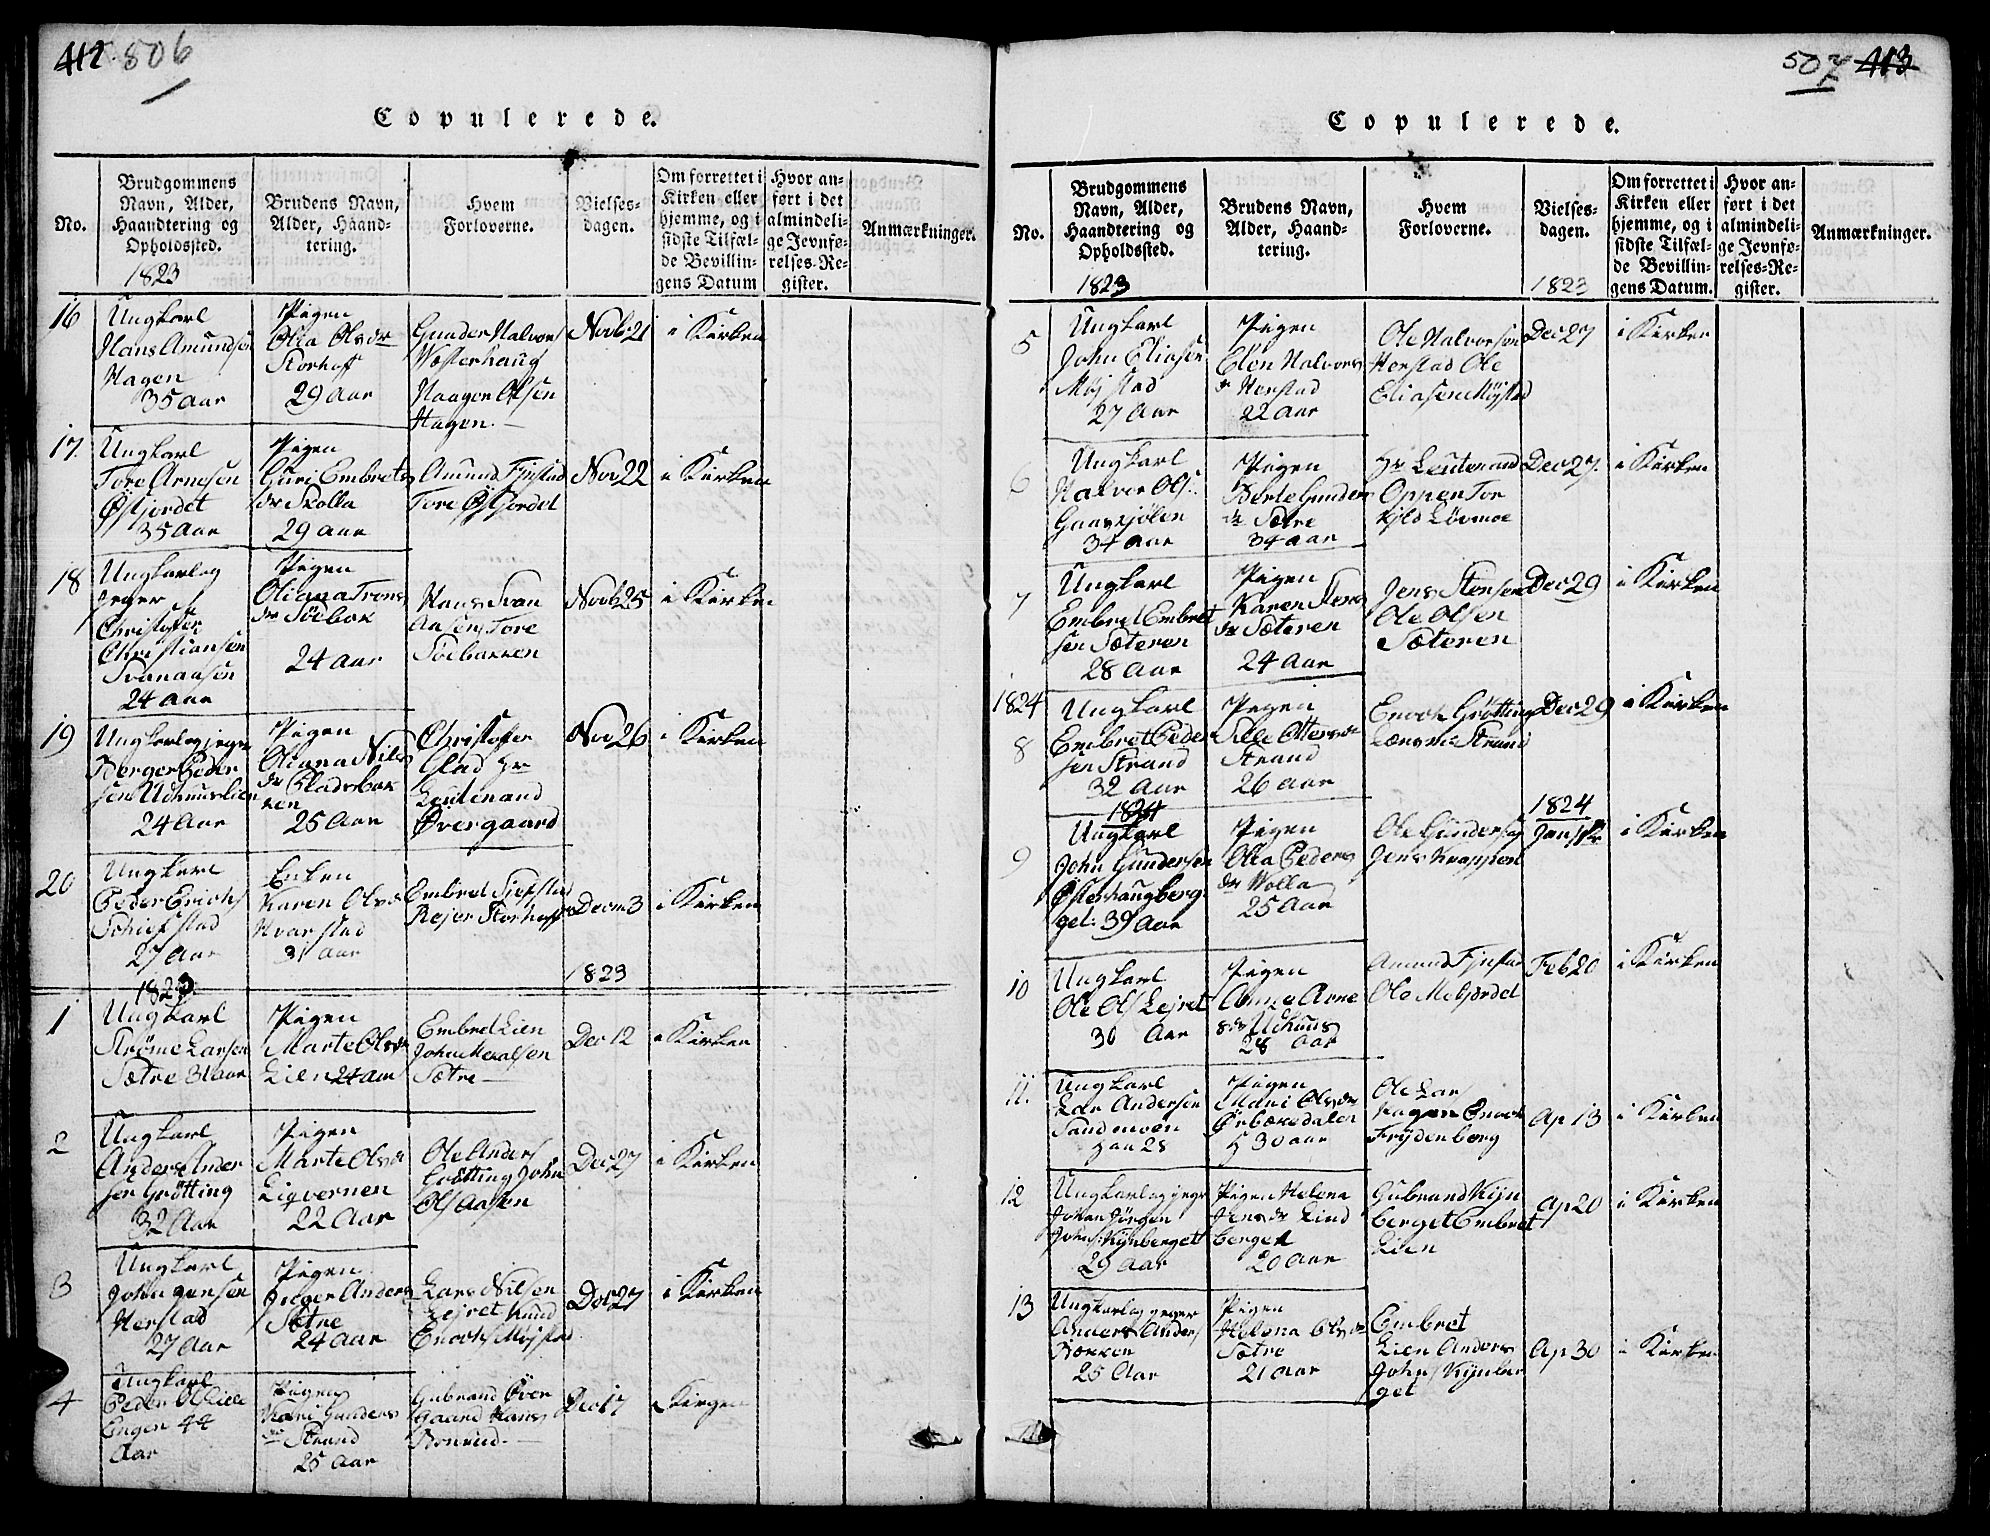 412 506
Copulerede.
No.
Brudgommens
Navn, Alder,
Haandtering og
Opholdssted.
1823
Brudens Navn,
Alder, Haand-
tering.
Hvem
Forloverne.
Vielses-
dagen.
Om forrettet i
Kirken eller
hjemme, og i
sidste Tilfæl-
de Bevillin-
gens Datum
Hvor an-
ført i det
almindeli-
ge Jevnfø-
relses-Re-
gister.
Anmærkninger.
16
Ungkarl
Hans Amundsen
Hagen
35 Aar
Pigen
Olia Olsdr
Storhoff
29 Aar
Gunder Halvors
Wæsterhaug
Haagen Olsen
Hagen.
Novb 21
i Kirken
17.
Ungkarl
Tore Arnesen
Østjordet
35 Aar
Pigen
Guri Embrets
dr Skolla
29 aar
Amund Fjestad
Tore Østjordet
Nov 22
i Kirken
18
Ungkarl og
Jeger
Christoffer
Christiansen
Svenaasen
24 aar
Pigen
Oliana Trons
dr Södbak
24 aar
Hans Svan
Aasen Tore
Södbakken
Novb 25
i Kirken
19
Ungkarl og jeger
Berger Peder
sen Udhuuslien
24 Aar
Pigen
Oliana Nils
dr Gladsbak
ken
25 Aar
Christoffer
Glad Hr
Leutenand
Øvergaard
Nov 26
i Kirken
20
Ungkarl
Peder Erichs
Schiefstad
27 Aar
Enken
Karen Olsd
Kvarstad
31 aar
Embret Siefstad
Rejer Storhoff
Decm 3
i Kirken
1823
1823
1
Ungkarl
Strøme Larsen
Sætre 31 aar
Pigen
Marte Olsdr
Lien 24 aar
Embret Lien
John Mekalsen
Sætre
Dec 12
i Kirken
2
Ungkarl
Anders Ander
sen Grötting
32 Aar
Pigen
Marte Olsd
Ligvernen
22 Aar
Ole Anders
Grötting John
Ols Aasen
Dec 27
i Kirken
3
Ungkarl
John Jensen
Herstad
27 Aar
Pigen
Inger Anders
Sætre
24 Aar
Lars Nilsen
Lejret Knud
Enochs Mojstad
Dec 27
i Kirken
4
Ungkarl
Peder Ols Lille
Engen 44
Aar
Pigen
Kari Gunders
dr Strand
25 Aar
Gubrand Över
Gaard Hans
Bonrud.
Dec 17
i Kirgen
507 413
Copulerede.
No.
Brudgommens
Navn, Alder,
Haandtering og
Opholdssted.
1823
Brudens Navn,
Alder, Haand-
tering.
Hvem
Forloverne.
Vielses-
dagen.
1823
Om forrettet i
Kirken eller
hjemme, og i
sidste Tilfæl-
de Bevillin-
gens Datum.
Hvor an-
ført i det
almindeli-
ge Jevnfø-
relses-Re-
gister.
Anmærkninger.
5
Ungkarl
John Eliasen
Mojstad
27 Aar
Pigen
Elen Halvors
dr Herstad
22 Aar
Ole Halvorsen
Herstad Ole
Eliasen Mojstad
Dec 27
i Kirken
6
Ungkarl
Halvor Ols.
Gaarsjölen
34 Aar
Pigen
Berte Gunders
dr Sætre
34 aar
Hr Leutenand
Oppen Tor
kjld Lövmoe
Dec 27.
i Kirken
7
Ungkarl
Embret Embret
sen Sæteren
28 Aar
Pigen
Karen Stens
dr Sæteren
24 Aar
Jens Stensen
Ole Olsen
Sæteren
Dec 29
i Kirken
1824
8
Ungkarl
Embret Peder
sen Strand
32 Aar
Pigen
Sille Ottersdr
Strand
26 Aar
Enock Grötting
Lænsm: Strand
Dec 29
i Kirken
1824
1824
9
Ungkarl
John Gundersen
Østerhaugberg
get. 39 Aar
Pigen
Olia Peders
dr Wolla
25 Aar
Ole Gunders og
Jens Knappen
Jan
i Kirken
10
Ungkarl
Ole Ols Lejret
30 Aar
Pigen
Anne Arne
sdr Udhuus
28 Aar
Amund Fjestad
Ole Meljordet
Feb 20
i Kirken
11.
Ungkarl
Lar Andersen
Sandmoen
Han 28
Pigen
Mari Olsdr
Örbækedalen
H 30 aar
Ole Lar
Hagen Enock
Frydenberg
Ap 13
i Kirken
12
Ungkarl og jeger
Johan Jörgen
Johns Kynberget
29 Aar
Pigen Helena
Jensdr Lind
berget
20 Aar
Gubrand Kyn
berget Embret
Lien
Ap 20
i Kirken
13
Ungkarl og jeger
Anders Anders
Bækken
25 Aar
Pigen
Helena Olsdr
Sætre
21 aar
Embret
Lien Anders
Johns Kynber
get
Ap 30
i Kirken